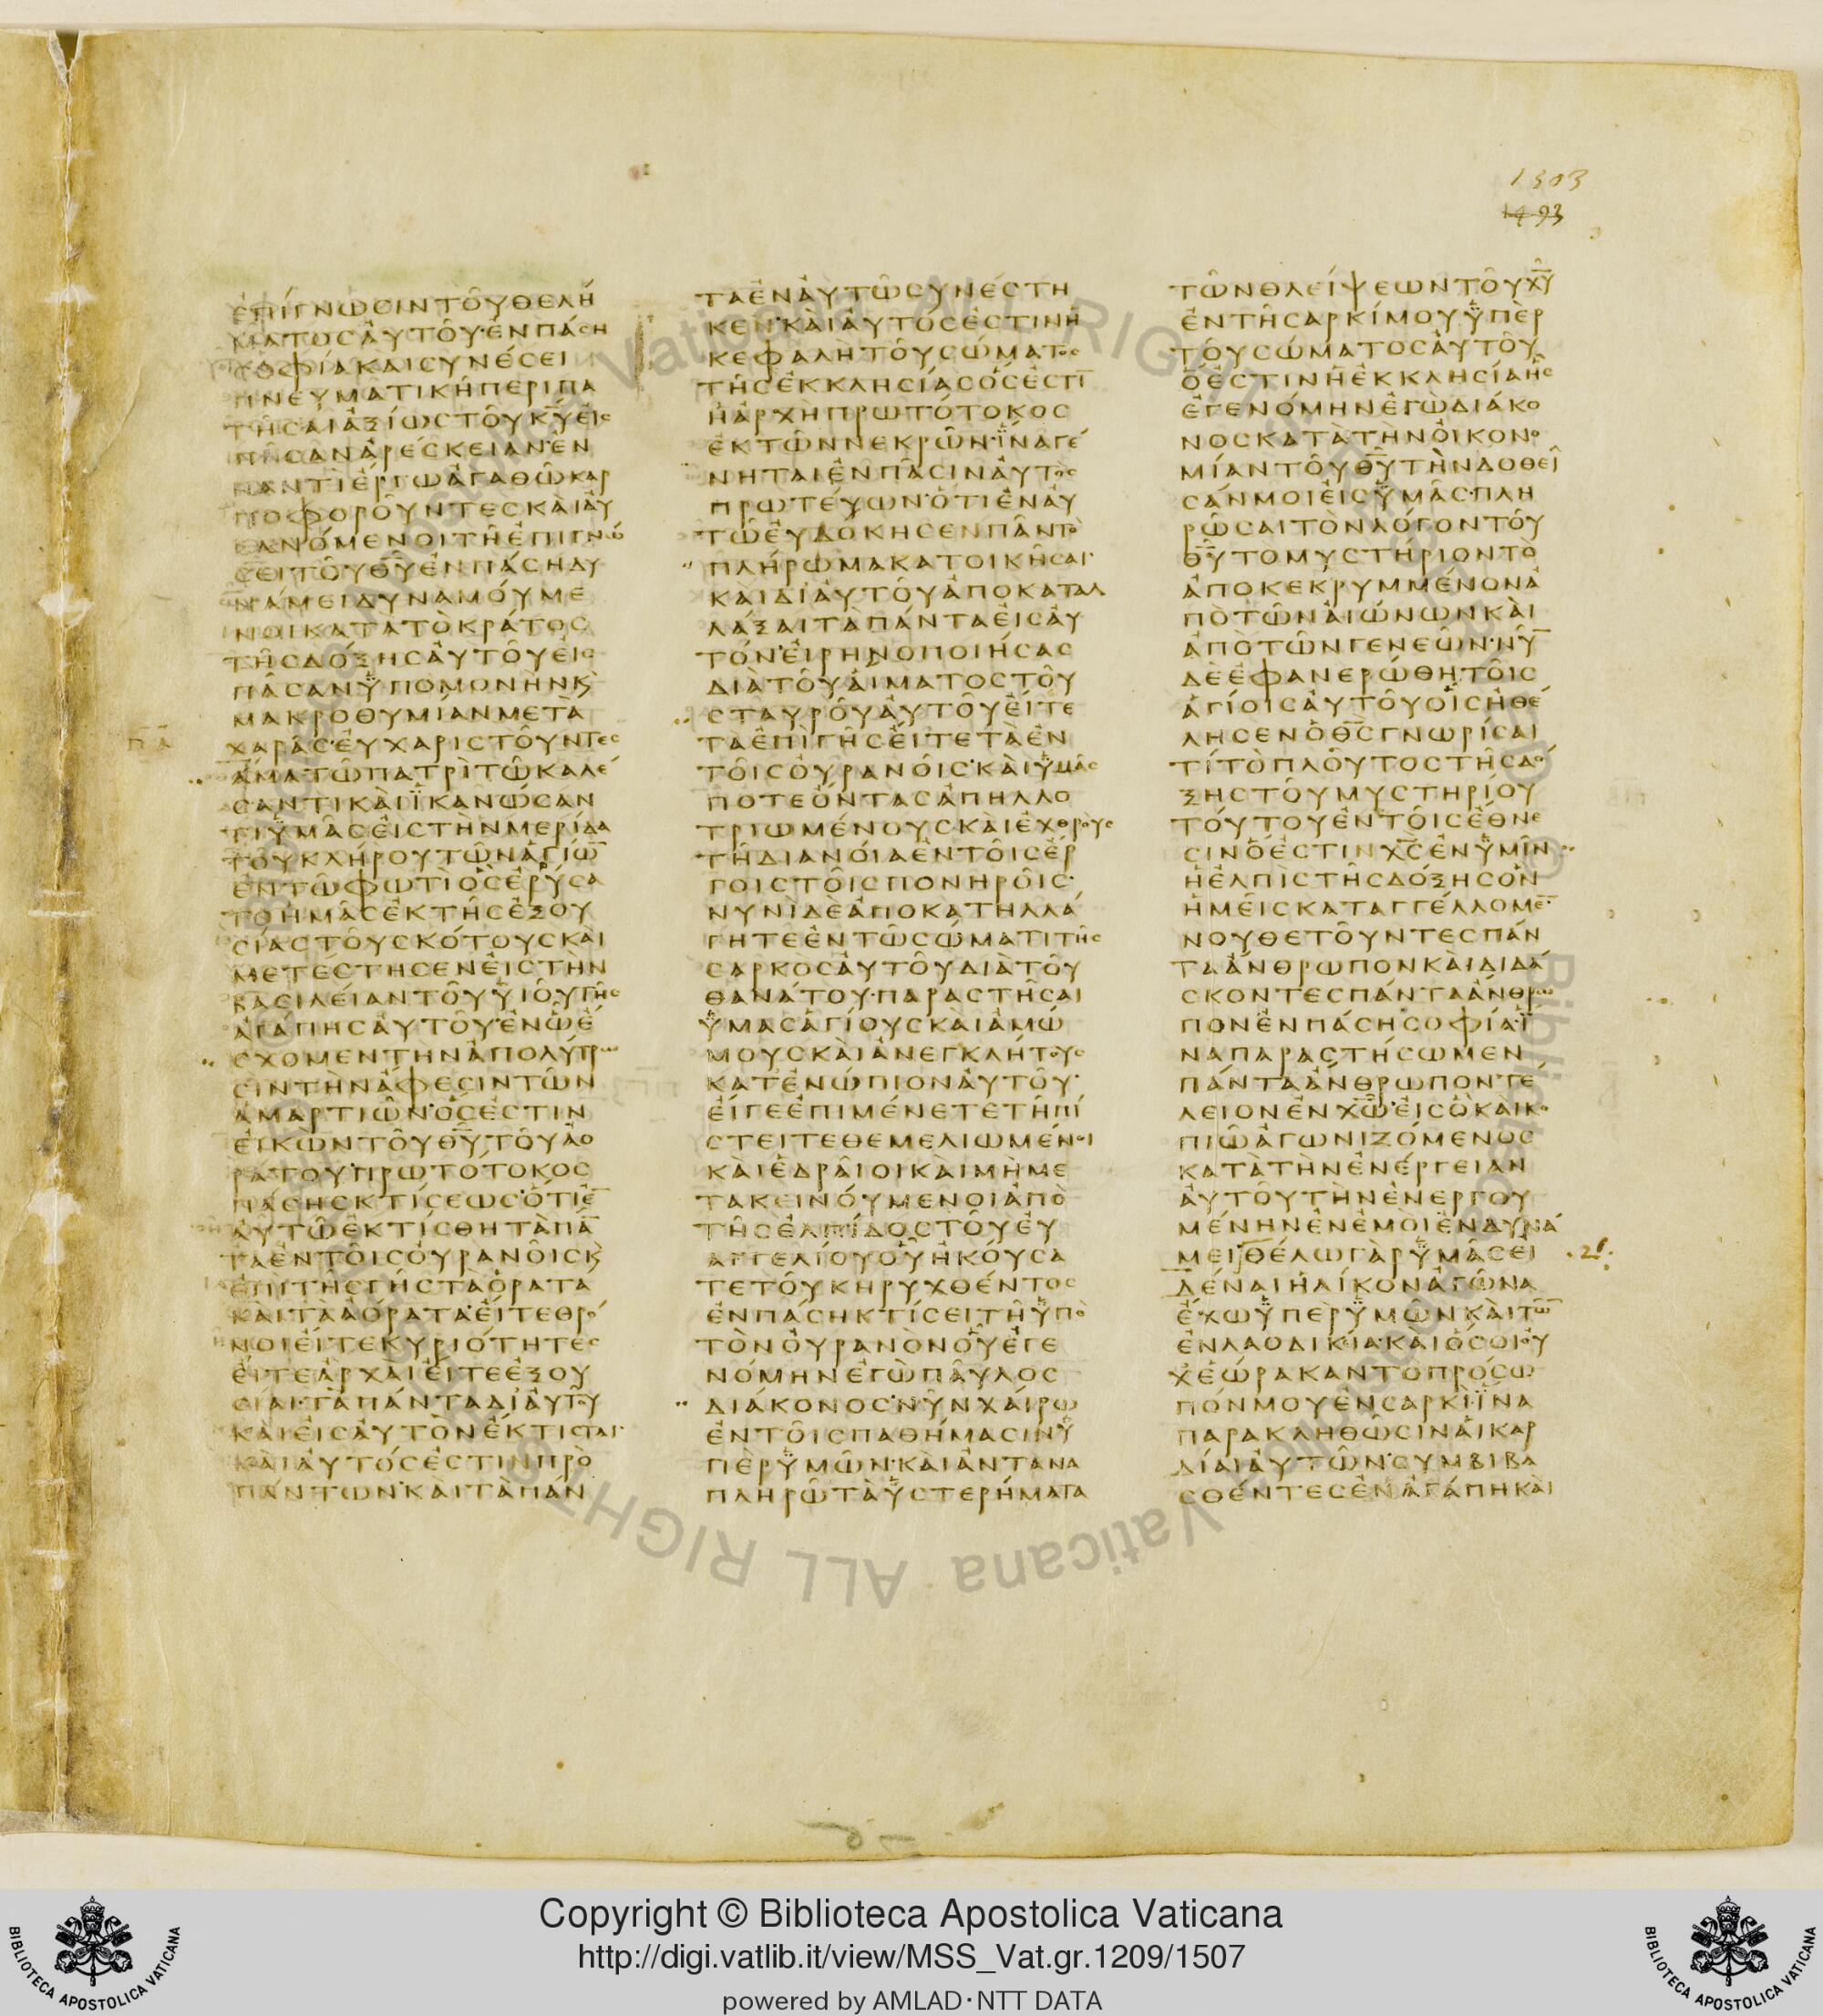 1303
1493
ἐπίγνωσιν τοῦ θελή
ματος αὐτοῦ ἐν πάση
σοφία καὶ συνέσει
πνευματικῆ περιπα
τῆσαι ἀξίως τοῦ κ̅υ̅ εἰς
πᾶσαν ἀρέσκειαν ἐν
παντὶ ἔργω ἀγαθῶ καρ
ποφοροῦντες καὶ αὐ
ξανόμενοι τῆ ἐπιγνώ
σει τοῦ θ̅υ̅ ἐν πάση δυ
νάμει δυναμούμε
νοι κατὰ τὸ κράτος
τῆς δόξης αὐτοῦ εἰς
πᾶσαν ϋπομονὴν κ̀
μακροθυμίαν μετὰ
χαρᾶς εὐχαριστοῦντες
ἅμα τῶ πατρὶ τῶ καλέ
σαντι καὶ ϊκανώσαν
τι ϋμᾶς εἰς τὴν μερίδα
τοῦ κλήρου τῶν ἁγίω̅
ἐν τῶ φωτὶ ὃς ἐρύσα
το ἡμᾶς ἐκ τῆς ἐξου
σίας τοῦ σκότους καὶ
μετέστησεν εἰς τὴν
βασιλείαν τοῦ ϋιοῦ τῆς
ἀγάπης αὐτοῦ ἐν ὧ ἔ
σχομεν τὴν ἀπολύτρω
σιν τὴν ἄφεσιν τῶν
ἁμαρτιῶν ὅς ἐστιν
εἰκὼν τοῦ θ̅υ̅ τοῦ ἀο
ράτου πρωτότοκος
πάσης κτίσεως ὅτι ἐ̅
αὐτῶ ἐκτίσθη τὰ πά̅
τα ἐν τοῖς οὐρανοῖς κ̀
ἐπὶ τῆς γῆς τὰ ὁρατὰ
καὶ τὰ ἀόρατα εἴτε θρό
νοι εἴτε κυριότητες
εἴτε ἀρχαὶ εἴτε ἐξου
σίαι τὰ πάντα δι αὐτοῦ
καὶ εἰς αὐτὸν ἔκτισται
καὶ αὐτός ἐστιν πρὸ
πάντων καὶ τὰ πάν
τα ἐν αὐτῶ συνέστη
κεν καὶ αὐτός ἐστιν ἡ
κεφαλὴ τοῦ σώματος
τῆς ἐκκλησίας ὅς ἐστι̅
ἡ ἀρχὴ πρωτότοκος
ἐκ τῶν νεκρῶν ἵνα γέ
νηται ἐν πᾶσιν αὐτὸς
πρωτεύων ὅτι ἐν αὐ
τῶ εὐδόκησεν πᾶν τὸ
πλήρωμα κατοικῆσαι
καὶ δι αὐτοῦ ἀποκαταλ
λάξαι τὰ πάντα εἰς αὐ
τόν εἰρηνοποιήσας
διὰ τοῦ αἵματος τοῦ
σταυροῦ αὐτοῦ εἴτε
τὰ ἐπὶ γῆς εἴτε τὰ ἐν
τοῖς οὐρανοῖς καὶ ϋμᾶς
ποτε ὄντας ἀπηλλο
τριωμένους καὶ ἐχθροὺς
τῆ διανοία ἐν τοῖς ἔρ
γοις τοῖς πονηροῖς
νυνὶ δὲ ἀποκατηλλά
γητε ἐν τῶ σώματι τῆς
σαρκὸς αὐτοῦ διὰ τοῦ
θανάτου παραστῆσαι
ϋμᾶς ἁγίους καὶ ἀμώ
μους καὶ ἀνεγκλήτους
κατενώπιον αὐτοῦ
εἴγε ἐπιμένετε τῆ πί
στει τεθεμελιωμένοι
καὶ ἑδραῖοι καὶ μὴ με
τακεινούμενοι ἀπὸ
τῆς ἐλπίδος τοῦ εὐ
αγγελίου οὗ ἠκούσα
τε τοῦ κηρυχθέντος
ἐν πάση κτίσει τῆ ϋπὸ
τὸν οὐρανὸν οὗ ἐγε
νόμην ἐγὼ παῦλος
διάκονος νῦν χαίρω
ἐν τοῖς παθήμασιν ϋ
πὲρ ϋμῶν καὶ ἀντανα
πληρῶ τὰ ϋστερήματα
τῶν θλείψεων τοῦ χ̅υ̅
ἐν τῆ σαρκί μου ϋπὲρ
τοῦ σώματος αὐτοῦ
ὅ ἐστιν ἡ ἐκκλησία ἧς
ἐγενόμην ἐγὼ διάκο
νος κατὰ τὴν οἰκονο
μίαν τοῦ θ̅υ̅ τὴν δοθεῖ
σάν μοι εἰς ϋμᾶς πλη
ρῶσαι τὸν λόγον τοῦ
θ̅υ̅ τὸ μυστήριον τὸ
ἀποκεκρυμμένον ἀ
πὸ τῶν αἰώνων καὶ
ἀπὸ τῶν γενεῶν νῦ̅
δὲ ἐφανερώθη τοῖς
ἁγίοις αὐτοῦ οἷς ἠθέ
λησεν ὁ θ̅ς̅ γνωρίσαι
τί τὸ πλοῦτος τῆς δό
ξης τοῦ μυστηρίου
τούτου ἐν τοῖς ἔθνε
σιν ὅ ἐστιν χ̅ς̅ ἐν ϋμῖν
ἡ ἐλπὶς τῆς δόξης ὃν
ἡμεῖς καταγγέλλομε̅
νουθετοῦντες πάν
τα ἄνθρωπον καὶ διδά
σκοντες πάντα ἄνθρω
πον ἐν πάση σοφία ἵ
να παραστήσωμεν
πάντα ἄνθρωπον τέ
λειον ἐν χ̅ω̅ εἰς ὃ καὶ κο
πιῶ ἀγωνιζόμενος
κατὰ τὴν ἐνέργειαν
αὐτοῦ τὴν ἐνεργου
μένην ἐν ἐμοὶ ἐν δυνά
μει θέλω γὰρ ϋμᾶς εἰ
δέναι ἡλίκον ἀγῶνα
ἔχω ϋπὲρ ϋμῶν καὶ τῶ̅
ἐν λαοδικία καὶ ὅσοι οὐ
χ ἑώρακαν τὸ πρόσω
πόν μου ἐν σαρκὶ ἵνα
παρακληθῶσιν αἱ καρ
δίαι αὐτῶν συμβιβα
σθέντες ἐν ἀγάπη καὶ
Copyright © Biblioteca Apostolica Vaticana
http://digi.vatlib.it/view/MSS_Vat.gr.1209/1507
powered by AMLAD·NTT DATA
BIBLIOTECA APOSTOLICA VATICANA
BIBLIOTECA APOSTOLICA VATICANA